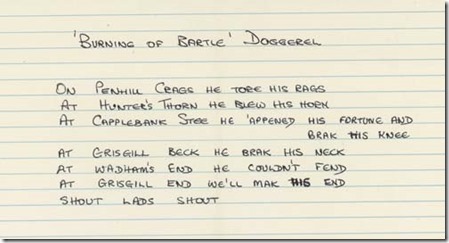 'Burning of Bartle' Doggerel
On Penhill Crags he tore his rags
At Hunter's Thorn he blew his horn
At Capplebank Stee he 'appened his fortune and
brak his knee
At Grisgill Beck he brak his neck
At Wadham's End he couldn't fend
At Grisgill End we'll mak his end
Shout lads shout